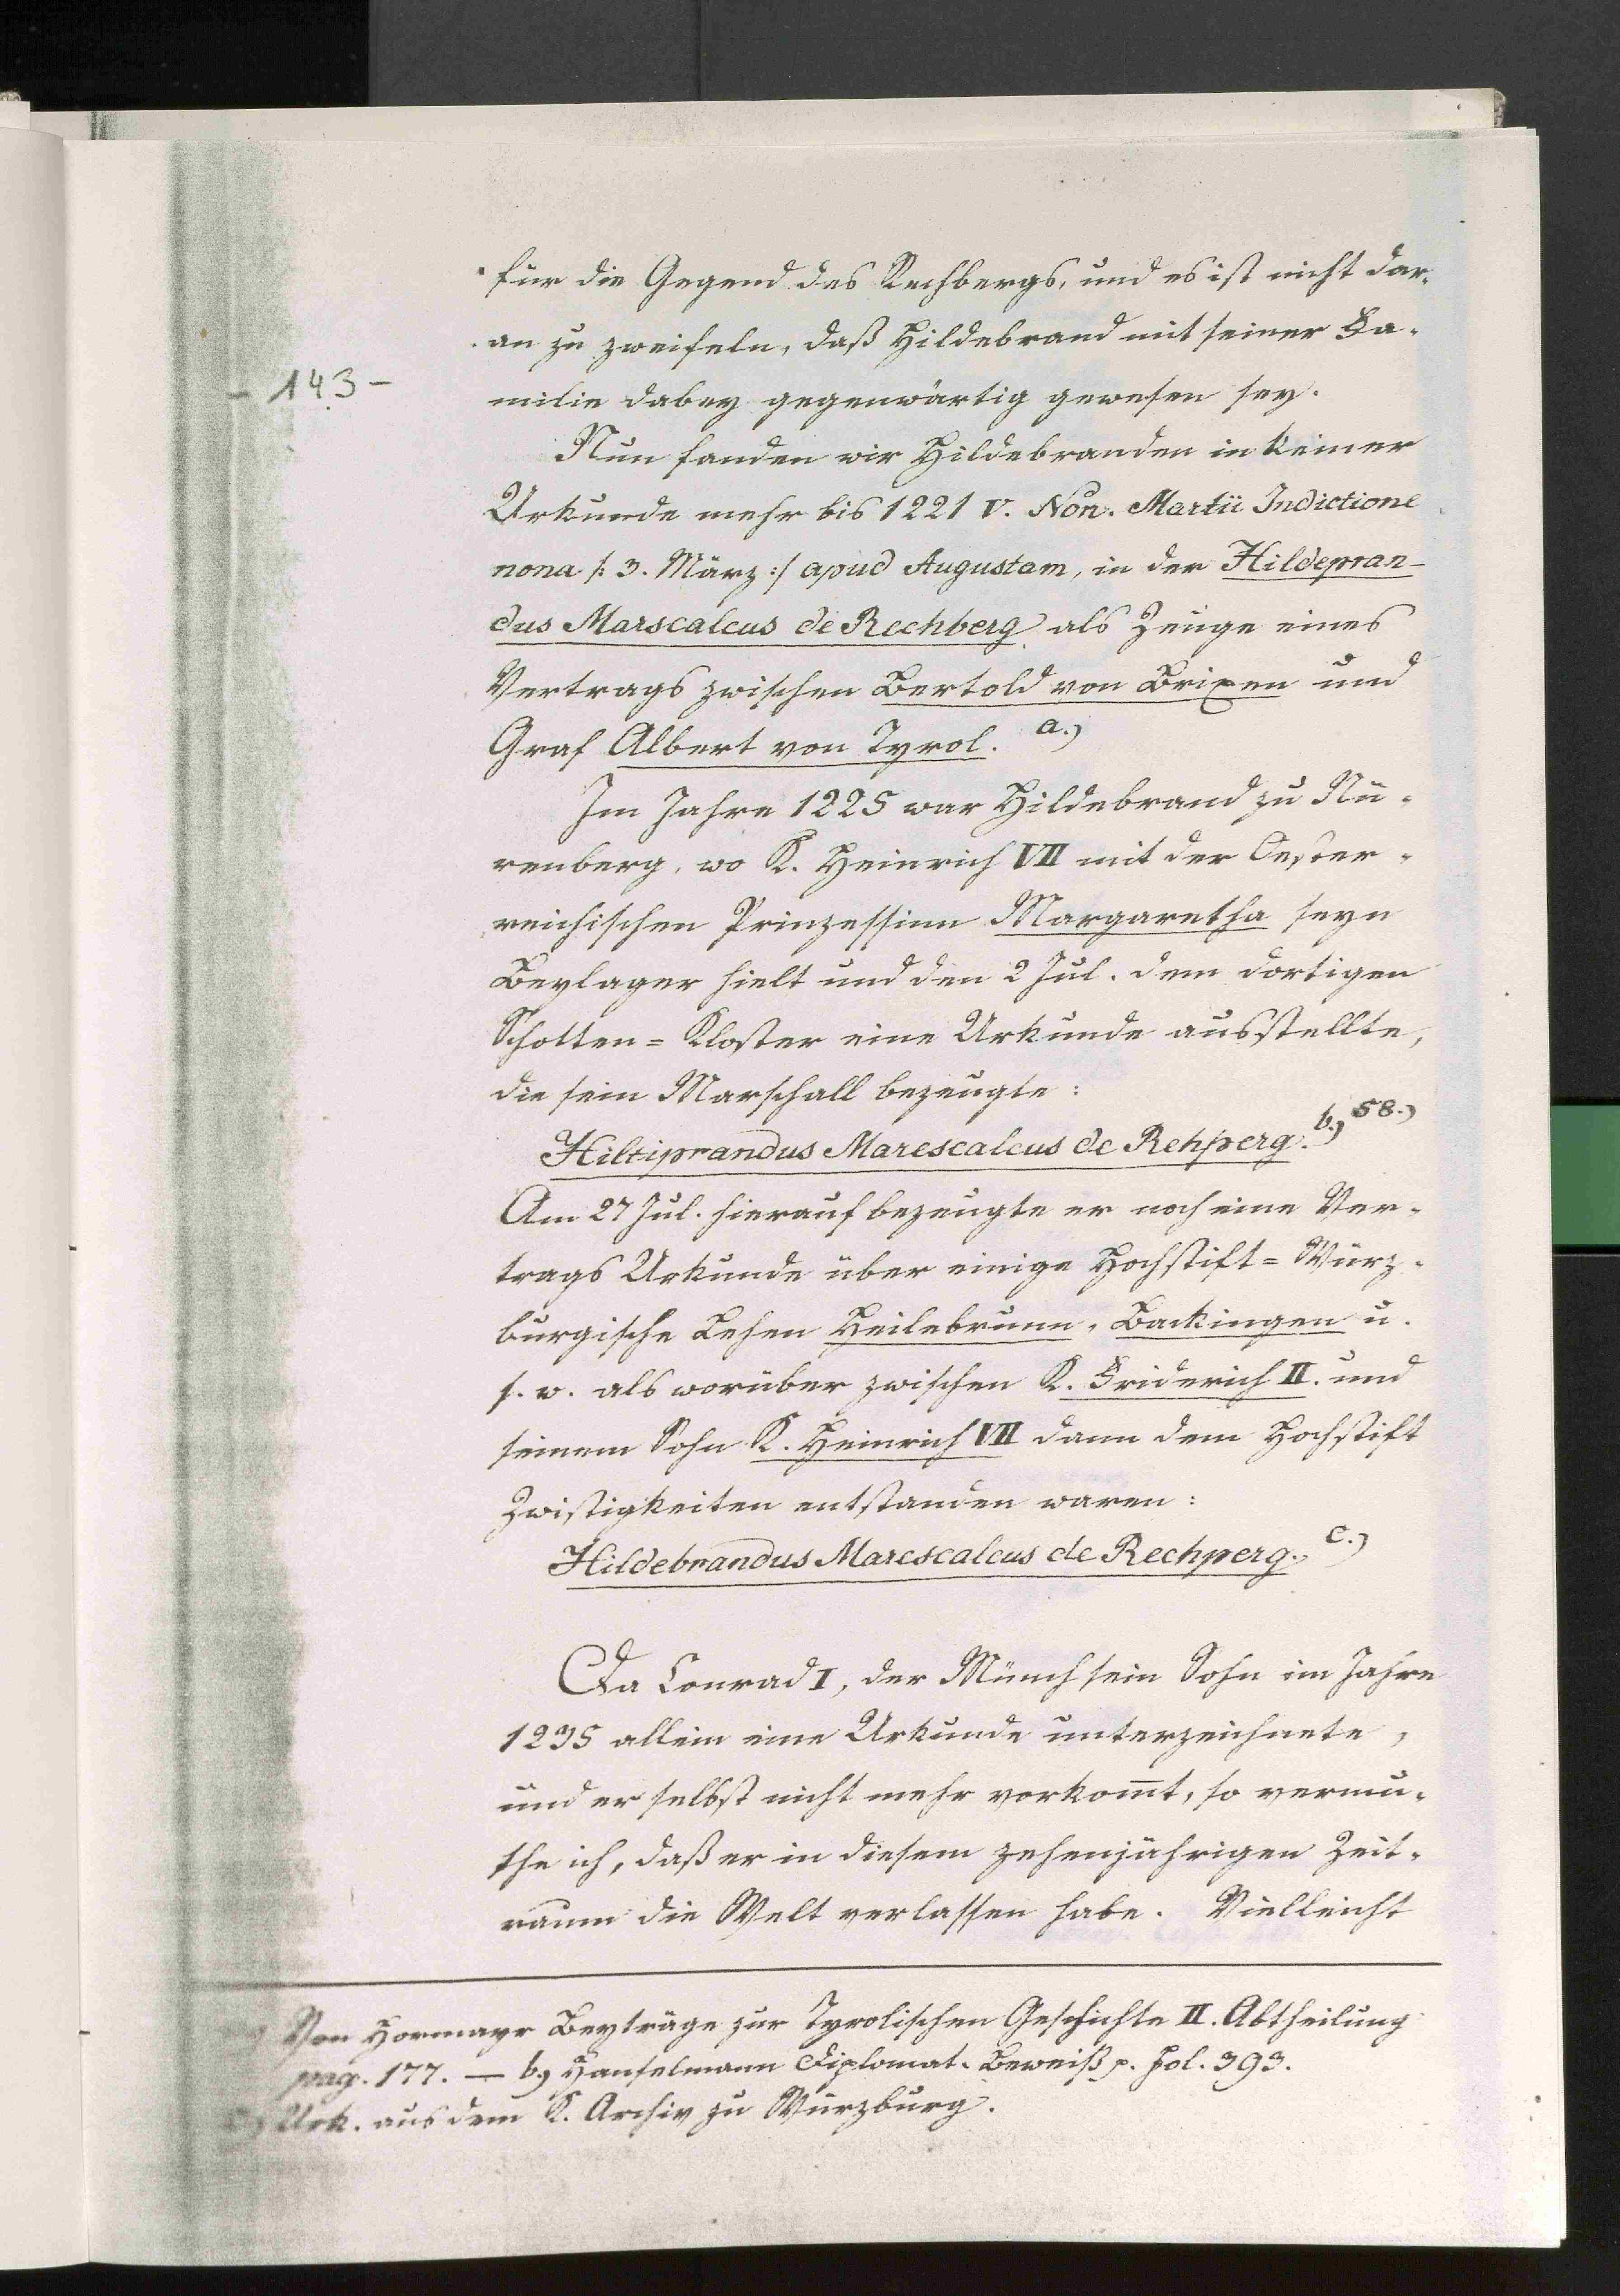 für die Gegend des Rechbergs, und es ist nicht dar-
an zu zweifeln, daß Hildebrand mit seiner Fa-
- 143 -
milie dabey gegenwärtig gewesen sey.
Nun fanden wir Hildebranden in keiner
Urkunde mehr bis 1221 V. Non. Martii Indictione
nona /: 3. März :/ apud Augustam, in der Hildepran-
dus Marscalcus de Rechberg als Zeuge eines
Vertrags zwischen Bertold von Brixen und
Graf Albert von Tyrol. a.)
Im Jahre 1225 war Hildebrand zu Nü-
renberg, wo K. Heinrich VII mit der Oester-
reichischen Prinzessinn Margaretha seyn
Beylager hielt und den 2 Jul. dem dortigen
Schotten=Kloster eine Urkunde ausstellte,
die sein Marschall bezeugte:
Hiltiprandus Marescalcus de Rehperg. b.) 58.)
Am 27 Jul. hierauf bezeugte er noch eine Ver-
trags Urkunde über einige Hochstift=Würz-
burgische Lehen Heilebrunn, Backingen u.
s. w. als worüber zwischen K. Friderich II. und
seinem Sohn K. Heinrich VII dann dem Hochstift
Zwistigkeiten entstanden waren:
Hildebrandus Marescalcus de Rechperg. c.)
Da Conrad I, der Münch sein Sohn im Jahre
1235 allein eine Urkunde unterzeichnete,
und er selbst nicht mehr vorkom̄t, so vermu-
the ich, daß er in diesem zehenjährigen Zeit-
raum die Welt verlassen habe. Vielleicht
Von Hormayr Beyträge zur Tyrolischen Geschichte II. Abtheilung
pag. 177. — b.) Hanselmann Diplomat. Beweiß p. fol. 393.
c.) Urk. aus dem K. Archiv zu Würzburg.